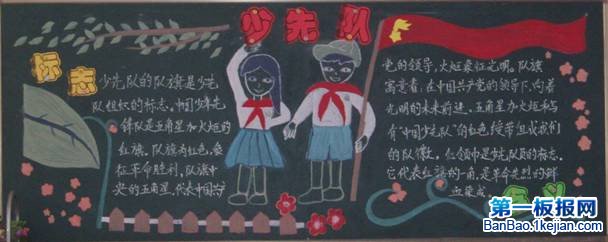 少先队
标志
少先队的队旗是少先
队组织的标志。中国少年先
锋队是五角星加火炬的
红旗。队旗为红色，象
征革命胜利，队旗中
央的五角星，代表中国共
党的领导，火炬象征光明。队旗
寓意着，在中国共产党的领导下，向着
光明的未来前进。五角星加火炬和写
有"中国少先队"的红色绶带组成我们
的队徽。红领巾是少先队员的标志。
它代表红旗的一角，是革命先烈的鲜
血染成
第一板报网
BanBao.1kejian.com